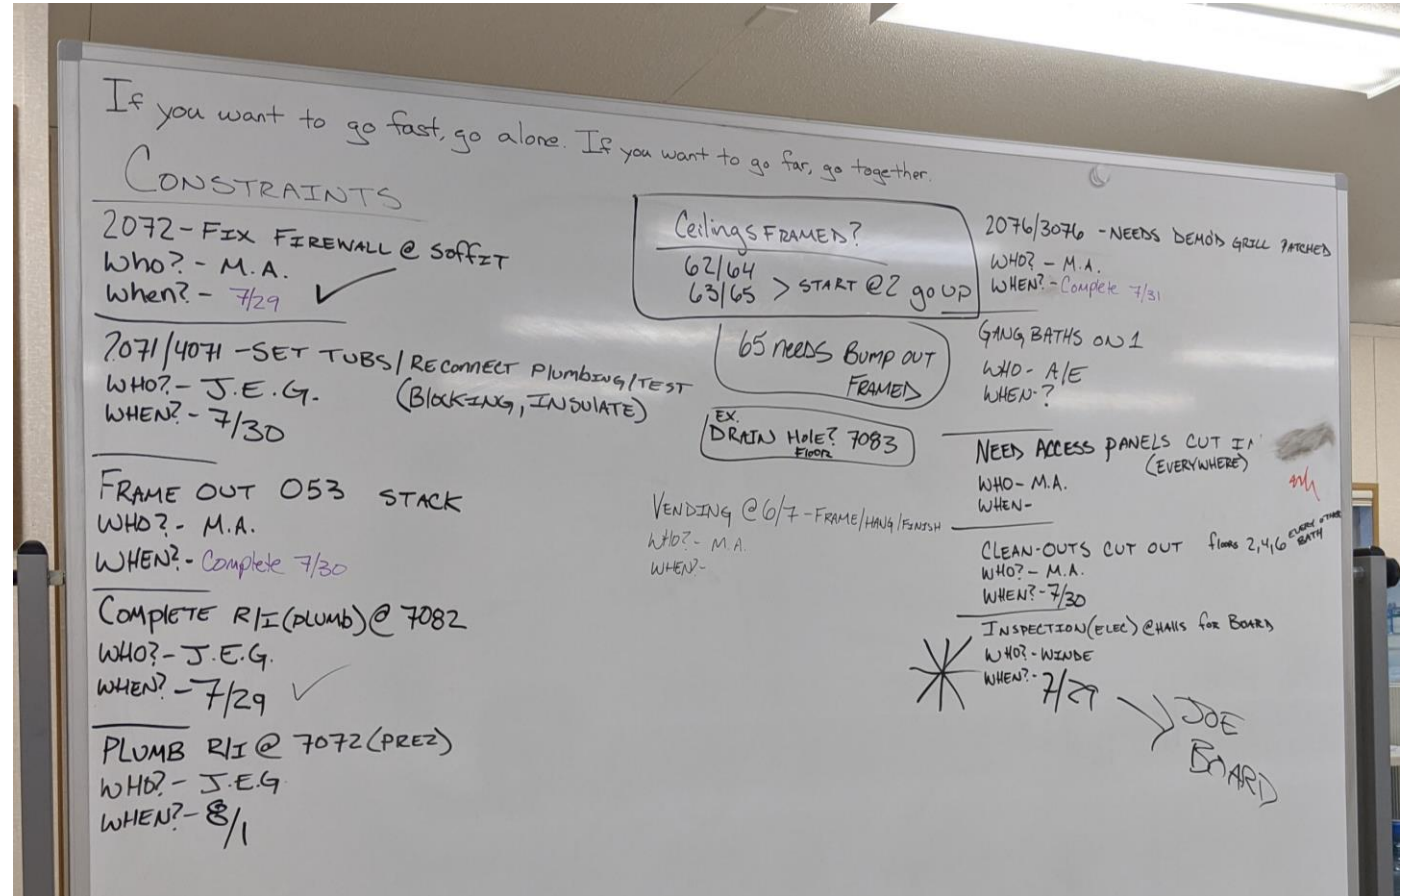 If you want to go fast, go alone. If you want to go far, go together.
CONSTRAINTS
2072 - FIX FIREWALL @ SOFFIT
WHO? - M.A.
When? - 7/29 ✓
2071/4071 - SET TUBS/RECONNECT PLUMBING/TEST
WHO? - J.E.G. (BLOCKING, INSULATE)
WHEN? - 7/30
FRAME OUT 053 STACK
WHO? - M.A.
WHEN? - Complete 7/30
COMPLETE R/I (PLUMB) @ 7082
WHO? - J.E.G.
WHEN? - 7/29 ✓
PLUMB R/I @ 7072 (PREZ)
WHO? - J.E.G
WHEN? - 8/1
Ceilings FRAMED?
62/64
63/65 > START @ 2 go UP
65 NEEDS BUMP OUT
FRAMED
EX.
DRAIN HOLE? 7083
FLOOR
VENDING @ 6/7 - FRAME/HANG/FINISH
WHO? - M.A.
WHEN? -
2076/3076 - NEEDS DEMO'D GRILL PATCHED
WHO? - M.A.
WHEN? - Complete 7/31
GANG BATHS ON 1
WHO - A/E
WHEN - ?
NEED ACCESS PANELS CUT IN
(EVERYWHERE)
WHO - M.A.
WHEN -
CLEAN-OUTS CUT OUT floors 2,4,6 EVERY OTHER
BATH
WHO? - M.A.
WHEN? - 7/30
INSPECTION (ELEC) @ HALLS for BOARD
WHO? - WINDE
WHEN? - 7/29
JOE
BOARD